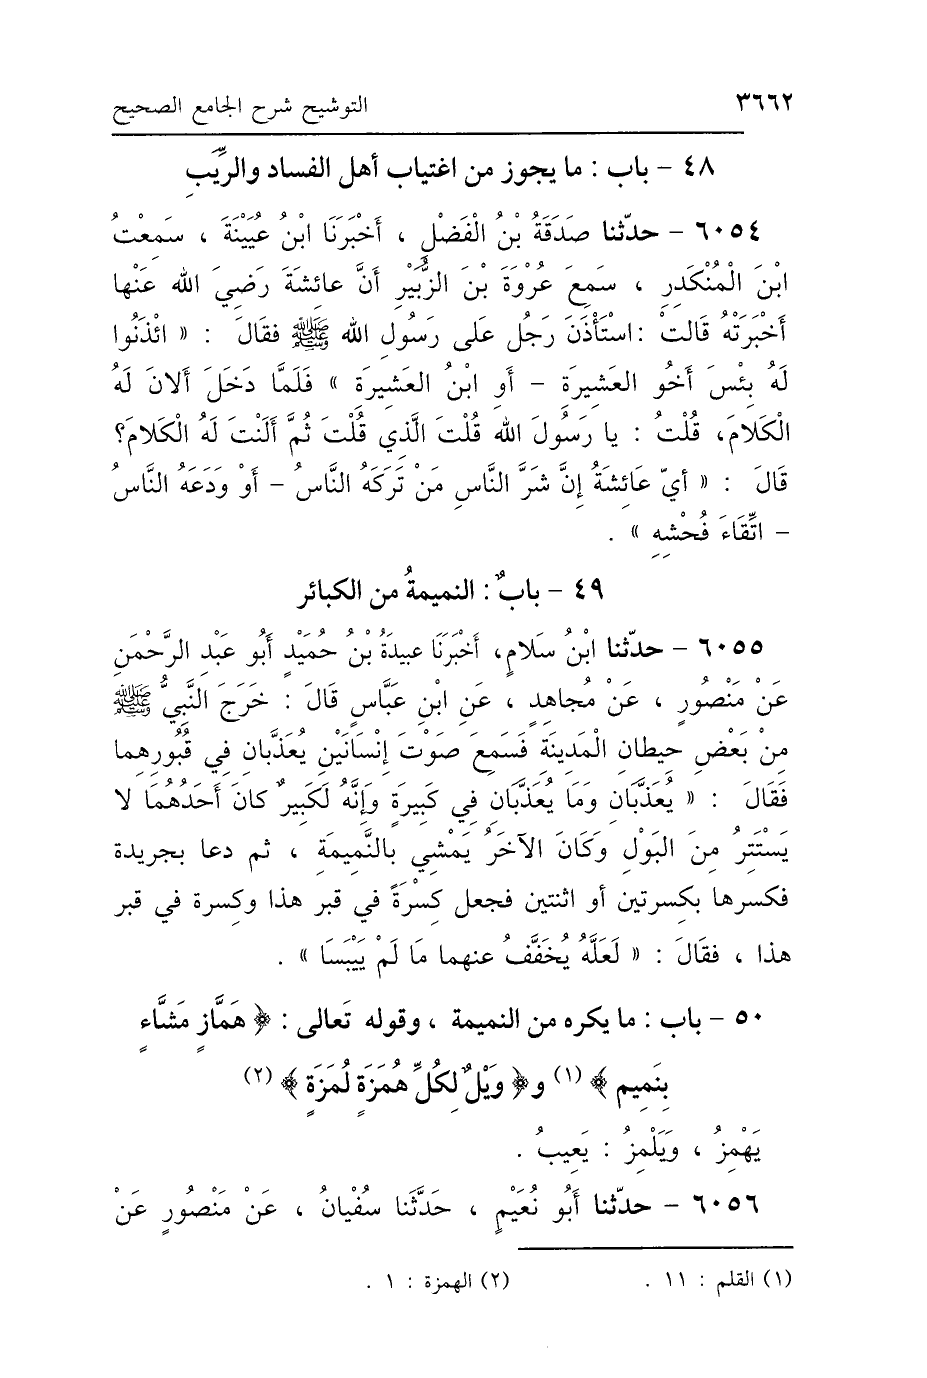 ٣٦٦٢ التوشيح شرح الجامع الصحيح
٤٨ - باب : ما يجوز من اغتياب أهل الفساد والرِّيَبِ
٦٠٥٤ - حدّثنا صَدَقَةُ بْنُ الْفَضْلِ ، أَخْبَرَنَا ابْنُ عُيَيْنَةَ ، سَمِعْتُ
ابْنَ الْمُنْكَدِرِ ، سَمِعَ عُرْوَةَ بْنَ الزُّبَيْرِ أَنَّ عائِشَةَ رَضِيَ الله عَنْها
أَخْبَرَتْهُ قَالَتْ :اسْتَأْذَنَ رَجُل عَلى رَسُولِ الله ﷺ فقَالَ : « ائْذَنُوا
لَهُ بِئْسَ أَخُو العَشِيرَةِ - أَو ابْنُ العَشِيرَةِ » فَلَمَّا دَخَلَ أَلانَ لَهُ
الْكَلامَ، قُلْتُ : يا رَسُولَ الله قُلْتَ الَّذِي قُلْتَ ثُمَّ أَلَنْتَ لَهُ الْكَلامَ؟
قَالَ : « أيّ عَائِشَةُ إِنَّ شَرَّ النَّاسِ مَنْ تَرَكَهُ النَّاسُ - أَو وَدَعَهُ النَّاسُ
- اتِّقَاءَ فُحْشِهِ » .
٤٩ - بابٌ : النميمةُ من الكبائر
٦٠٥٥ - حدّثنا ابْنُ سَلامٍ، أَخْبَرَنَا عبيدَةُ بْنُ حُمَيْدٍ أَبُو عَبْدِ الرَّحْمَنِ
عَنْ مَنْصُورٍ ، عَنْ مُجاهِدٍ ، عَنِ ابْنِ عَبَّاسٍ قَالَ : خَرَجَ النَّبِيُّ ﷺ
مِنْ بَعْضِ حيطانِ الْمَدِينَةِ فَسَمِعَ صَوْتَ إِنْسَانَيْنِ يُعَذَّبانِ فِي قُبُورِهما
فَقَالَ : « يُعَذَّبَانِ وَمَا يُعَذَّبَانِ فِي كَبِيرَةٍ وَإِنَّهُ لَكَبِيرٌ كانَ أَحَدُهُمَا لا
يَسْتَتِرُ مِنَ البَوْلِ وَكَانَ الآخَرُ يَمْشِي بالنَّمِيمَةِ ، ثم دعا بجريدة
فكسرها بكِسرتين أو اثنتين فجعل كِسْرَةً في قبر هذا وكِسرة في قبر
هذا ، فقَالَ : « لَعَلَّهُ يُخَفَّفُ عنهما مَا لَمْ يَيْبَسَا » .
٥٠ - باب : ما يكره من النميمة ، وقوله تَعالى : ﴿ هَمَّازٍ مَشَّاءٍ
بِنَمِيم ﴾ (١) و﴿ وَيْلٌ لِكُلِّ هُمَزَةٍ لُمَزَةٍ ﴾ (٢)
يَهْمِزُ ، وَيَلْمِزُ : يَعِيبُ .
٦٠٥٦ - حدّثنا أَبُو نُعَيْمٍ ، حَدَّثَنا سُفْيانُ ، عَنْ مَنْصُورٍ عَنْ
(١) القلم : ١١ . (٢) الهمزة : ١ .